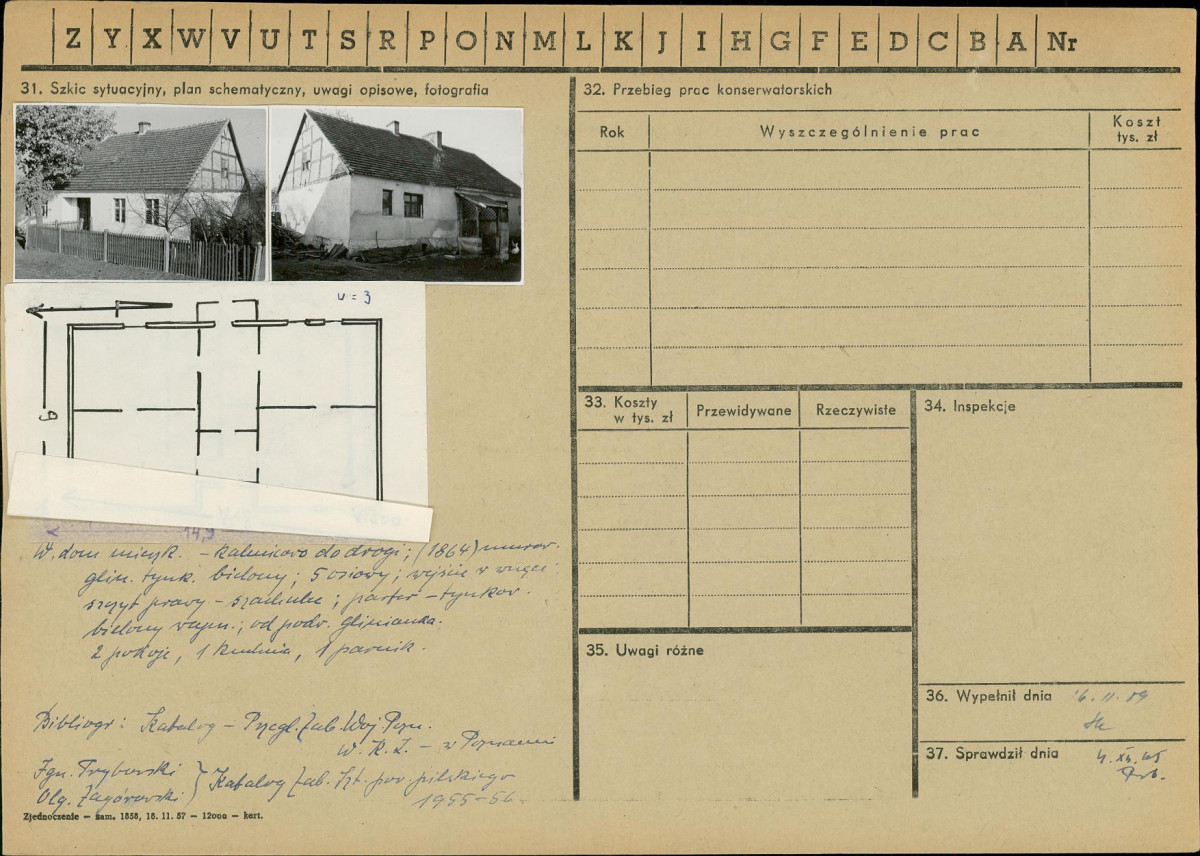 Z Y X W V U T S R P O N M L K J I H G F E D C B A Nr
31. Szkic sytuacyjny, plan schematyczny, uwagi opisowe, fotografia
v = 3
9
14,9
W. dom mieszk. – kalenicowo do drogi; (1864) murow.
glin. tynk. bielony; 5 osiowy; wejście w wnęce;
szczyt prawy – szachulec; parter – tynkow.
bielony wapn.; od podw. glinianka.
2 pokoje, 1 kuchnia, 1 parnik.
Bibliogr: Katalog – Przegl. Zab. Woj. Pozn.
W. K. Z. – w Poznaniu
Ign. Tryburski } Katalog Zab. Szt. pow. pilskiego
Olg. Zagórowski } 1955-56
Zjednoczenie – zam. 1858, 18. 11. 57 – 12000 – kart.
32. Przebieg prac konserwatorskich
Rok Wyszczególnienie prac Koszt tys. zł
33. Koszty w tys. zł Przewidywane Rzeczywiste
34. Inspekcje
35. Uwagi różne
36. Wypełnił dnia 16. 11. 59
37. Sprawdził dnia